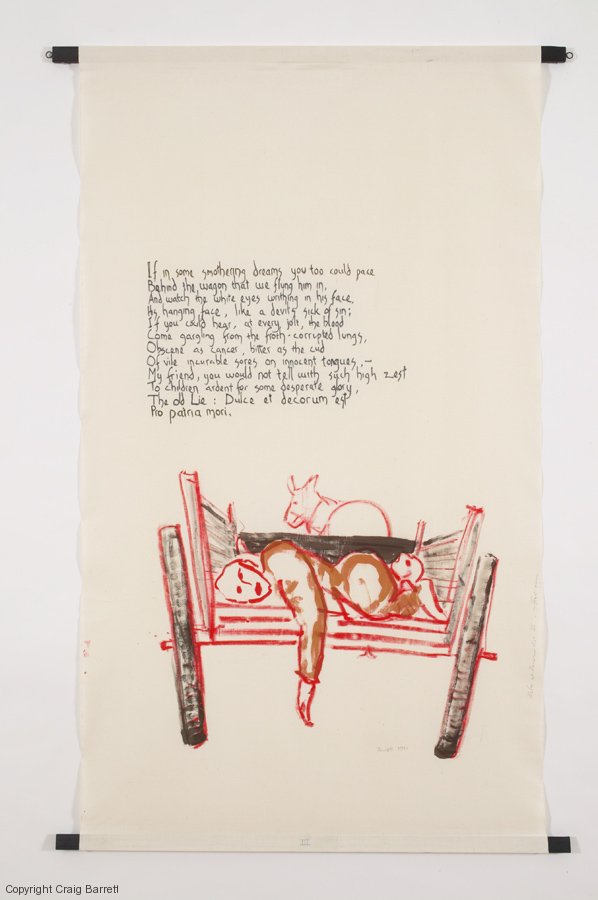 If in some smothering dreams you too could pace
Behind the wagon that we flung him in,
And watch the white eyes writhing in his face,
His hanging face, like a devils sick of sin;
If you could hear, at every jolt, the blood
Come gargling from the froth-corrupted lungs,
Obscene as cancer, bitter as the cud
Of vile incurable sores on innocent tongues, –
My friend, you would not tell with such high zest
To children ardent for some desperate glory,
The old Lie : Dulce et decorum est
Pro patria mori.
III
Copyright Craig Barrett